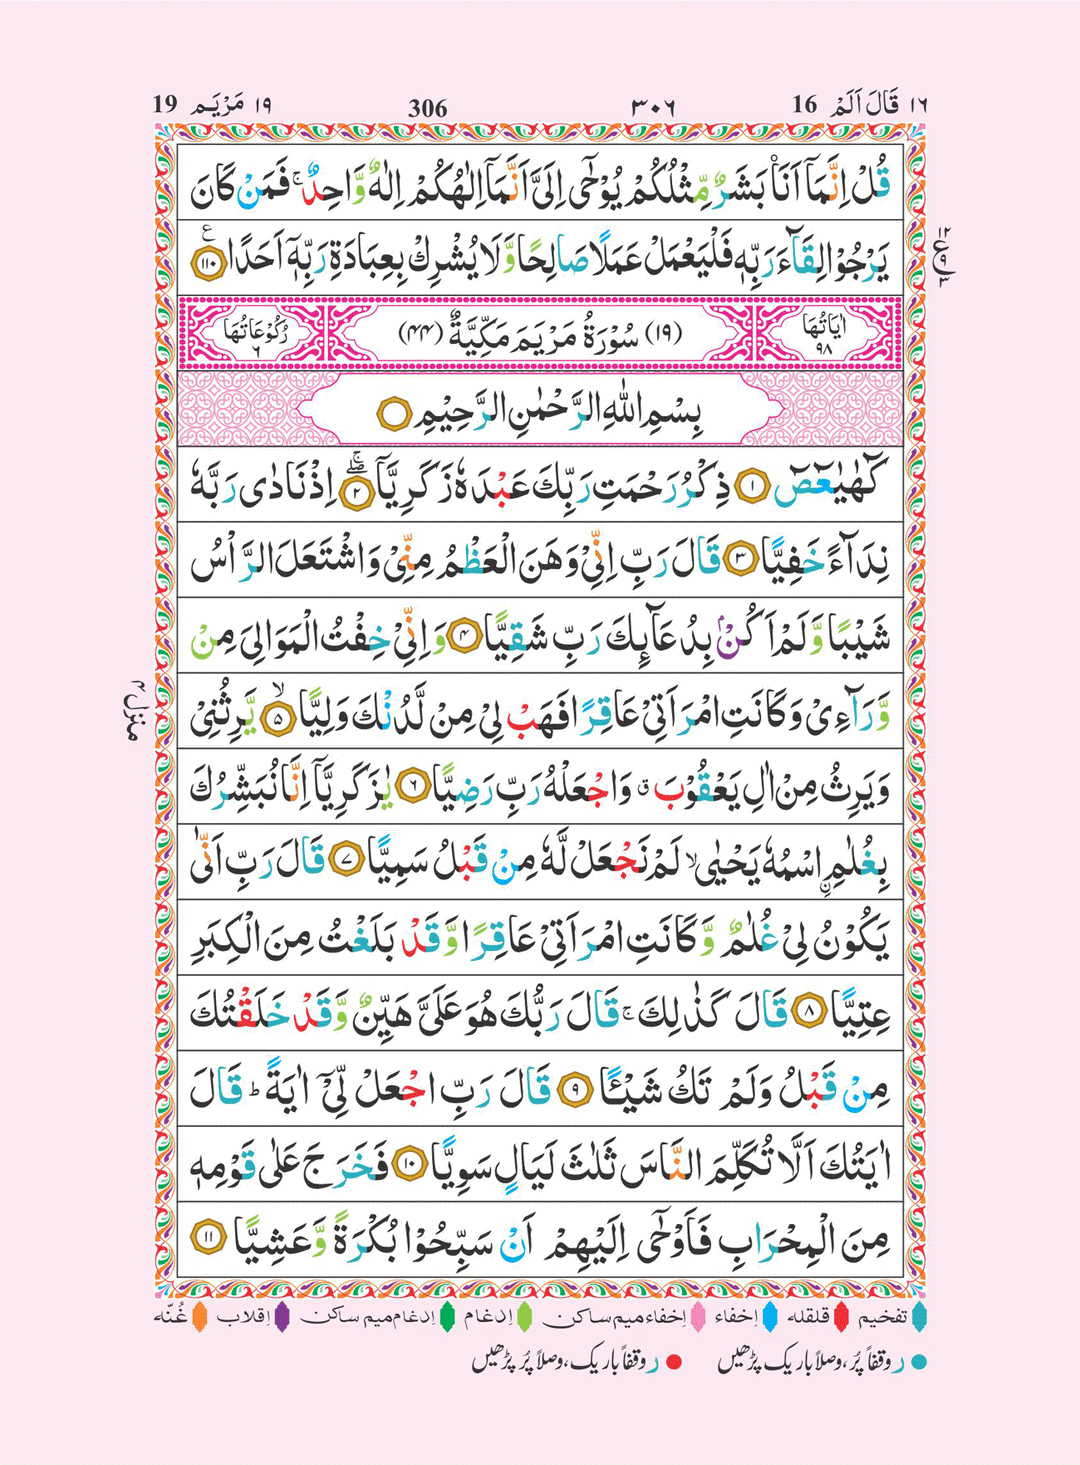 ١٦ قَالَ اَلَمْ 16 ٣٠٦ 306 ١٩ مَرْيَم 19
قُلْ اِنَّمَآ اَنَا۠ بَشَرٌ مِّثْلُكُمْ يُوْحٰۤى اِلَيَّ اَنَّمَاۤ اِلٰهُكُمْ اِلٰهٌ وَّاحِدٌ ۚ فَمَنْ كَانَ
يَرْجُوْا لِقَآءَ رَبِّهٖ فَلْيَعْمَلْ عَمَلًا صَالِحًا وَّلَا يُشْرِكْ بِعِبَادَةِ رَبِّهٖۤ اَحَدًا ١١٠ ع
١٢
ع ٩
٣
اٰيَاتُهَا ٩٨ (١٩) سُوْرَةُ مَرْيَمَ مَكِّيَّةٌ (٤٤) رُكُوْعَاتُهَا ٦
بِسْمِ اللّٰهِ الرَّحْمٰنِ الرَّحِيْمِ
كٓهٰيٰعٓصٓ ١ ذِكْرُ رَحْمَتِ رَبِّكَ عَبْدَهٗ زَكَرِيَّا ٢ۖۚ اِذْ نَادٰى رَبَّهٗ
نِدَآءً خَفِيًّا ٣ قَالَ رَبِّ اِنِّيْ وَهَنَ الْعَظْمُ مِنِّيْ وَاشْتَعَلَ الرَّاْسُ
شَيْبًا وَّلَمْ اَكُنْۢ بِدُعَآئِكَ رَبِّ شَقِيًّا ٤ وَاِنِّيْ خِفْتُ الْمَوَالِيَ مِنْ
وَّرَآءِيْ وَكَانَتِ امْرَاَتِيْ عَاقِرًا فَهَبْ لِيْ مِنْ لَّدُنْكَ وَلِيًّا ٥ۙ يَّرِثُنِيْ
وَيَرِثُ مِنْ اٰلِ يَعْقُوْبَ ۗ وَاجْعَلْهُ رَبِّ رَضِيًّا ٦ يٰزَكَرِيَّاۤ اِنَّا نُبَشِّرُكَ
بِغُلٰمِ ۨاسْمُهٗ يَحْيٰى ۙ لَمْ نَجْعَلْ لَّهٗ مِنْ قَبْلُ سَمِيًّا ٧ قَالَ رَبِّ اَنّٰى
يَكُوْنُ لِيْ غُلٰمٌ وَّكَانَتِ امْرَاَتِيْ عَاقِرًا وَّقَدْ بَلَغْتُ مِنَ الْكِبَرِ
عِتِيًّا ٨ قَالَ كَذٰلِكَ ۚ قَالَ رَبُّكَ هُوَ عَلَيَّ هَيِّنٌ وَّقَدْ خَلَقْتُكَ
مِنْ قَبْلُ وَلَمْ تَكُ شَيْـًٔا ٩ قَالَ رَبِّ اجْعَلْ لِّيْۤ اٰيَةً ؕ قَالَ
اٰيَتُكَ اَلَّا تُكَلِّمَ النَّاسَ ثَلٰثَ لَيَالٍ سَوِيًّا ١٠ فَخَرَجَ عَلٰى قَوْمِهٖ
مِنَ الْمِحْرَابِ فَاَوْحٰۤى اِلَيْهِمْ اَنْ سَبِّحُوْا بُكْرَةً وَّعَشِيًّا ١١
منزل ٤
تفخیم قلقلہ اِخفاء اِخفاءمیم ساکن اِدغام اِدغام میم ساکن اِقلاب غُنّہ
ر وقفاً پُر، وصلاً باریک پڑھیں ر وقفاً باریک، وصلاً پُر پڑھیں